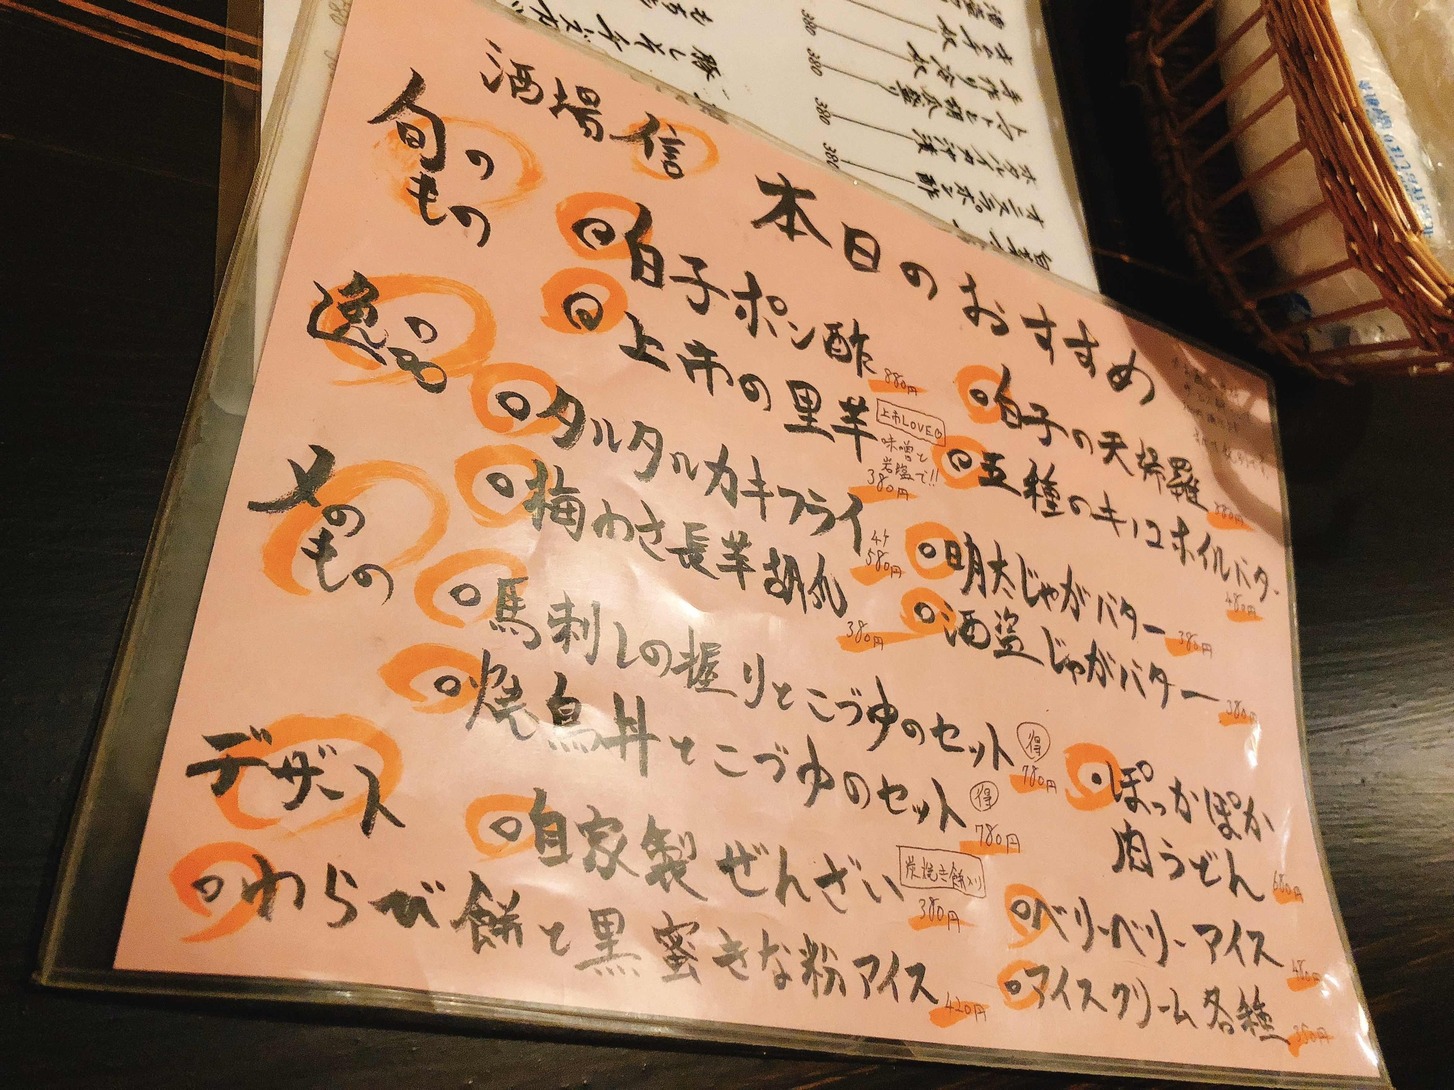 酒場 信
本日のおすすめ
旬のもの
白子ポン酢 880円
上市の里芋 上市LOVE 味噌と岩塩で!! 380円
白子の天婦羅 880円
五種のキノコホイルバター 480円
逸品
タルタルカキフライ 4ケ 580円
梅わさ長芋胡瓜 380円
明太じゃがバター 380円
酒盗じゃがバター 380円
〆のもの
馬刺しの握りとこづゆのセット 得 780円
焼鳥丼とこづゆのセット 得 780円
ぽっかぽか
肉うどん 680円
デザート
自家製ぜんざい 炭焼き餅入り 380円
わらび餅と黒蜜きな粉アイス 420円
ベリーベリーアイス 480円
アイスクリーム各種 350円
380
380
380
380